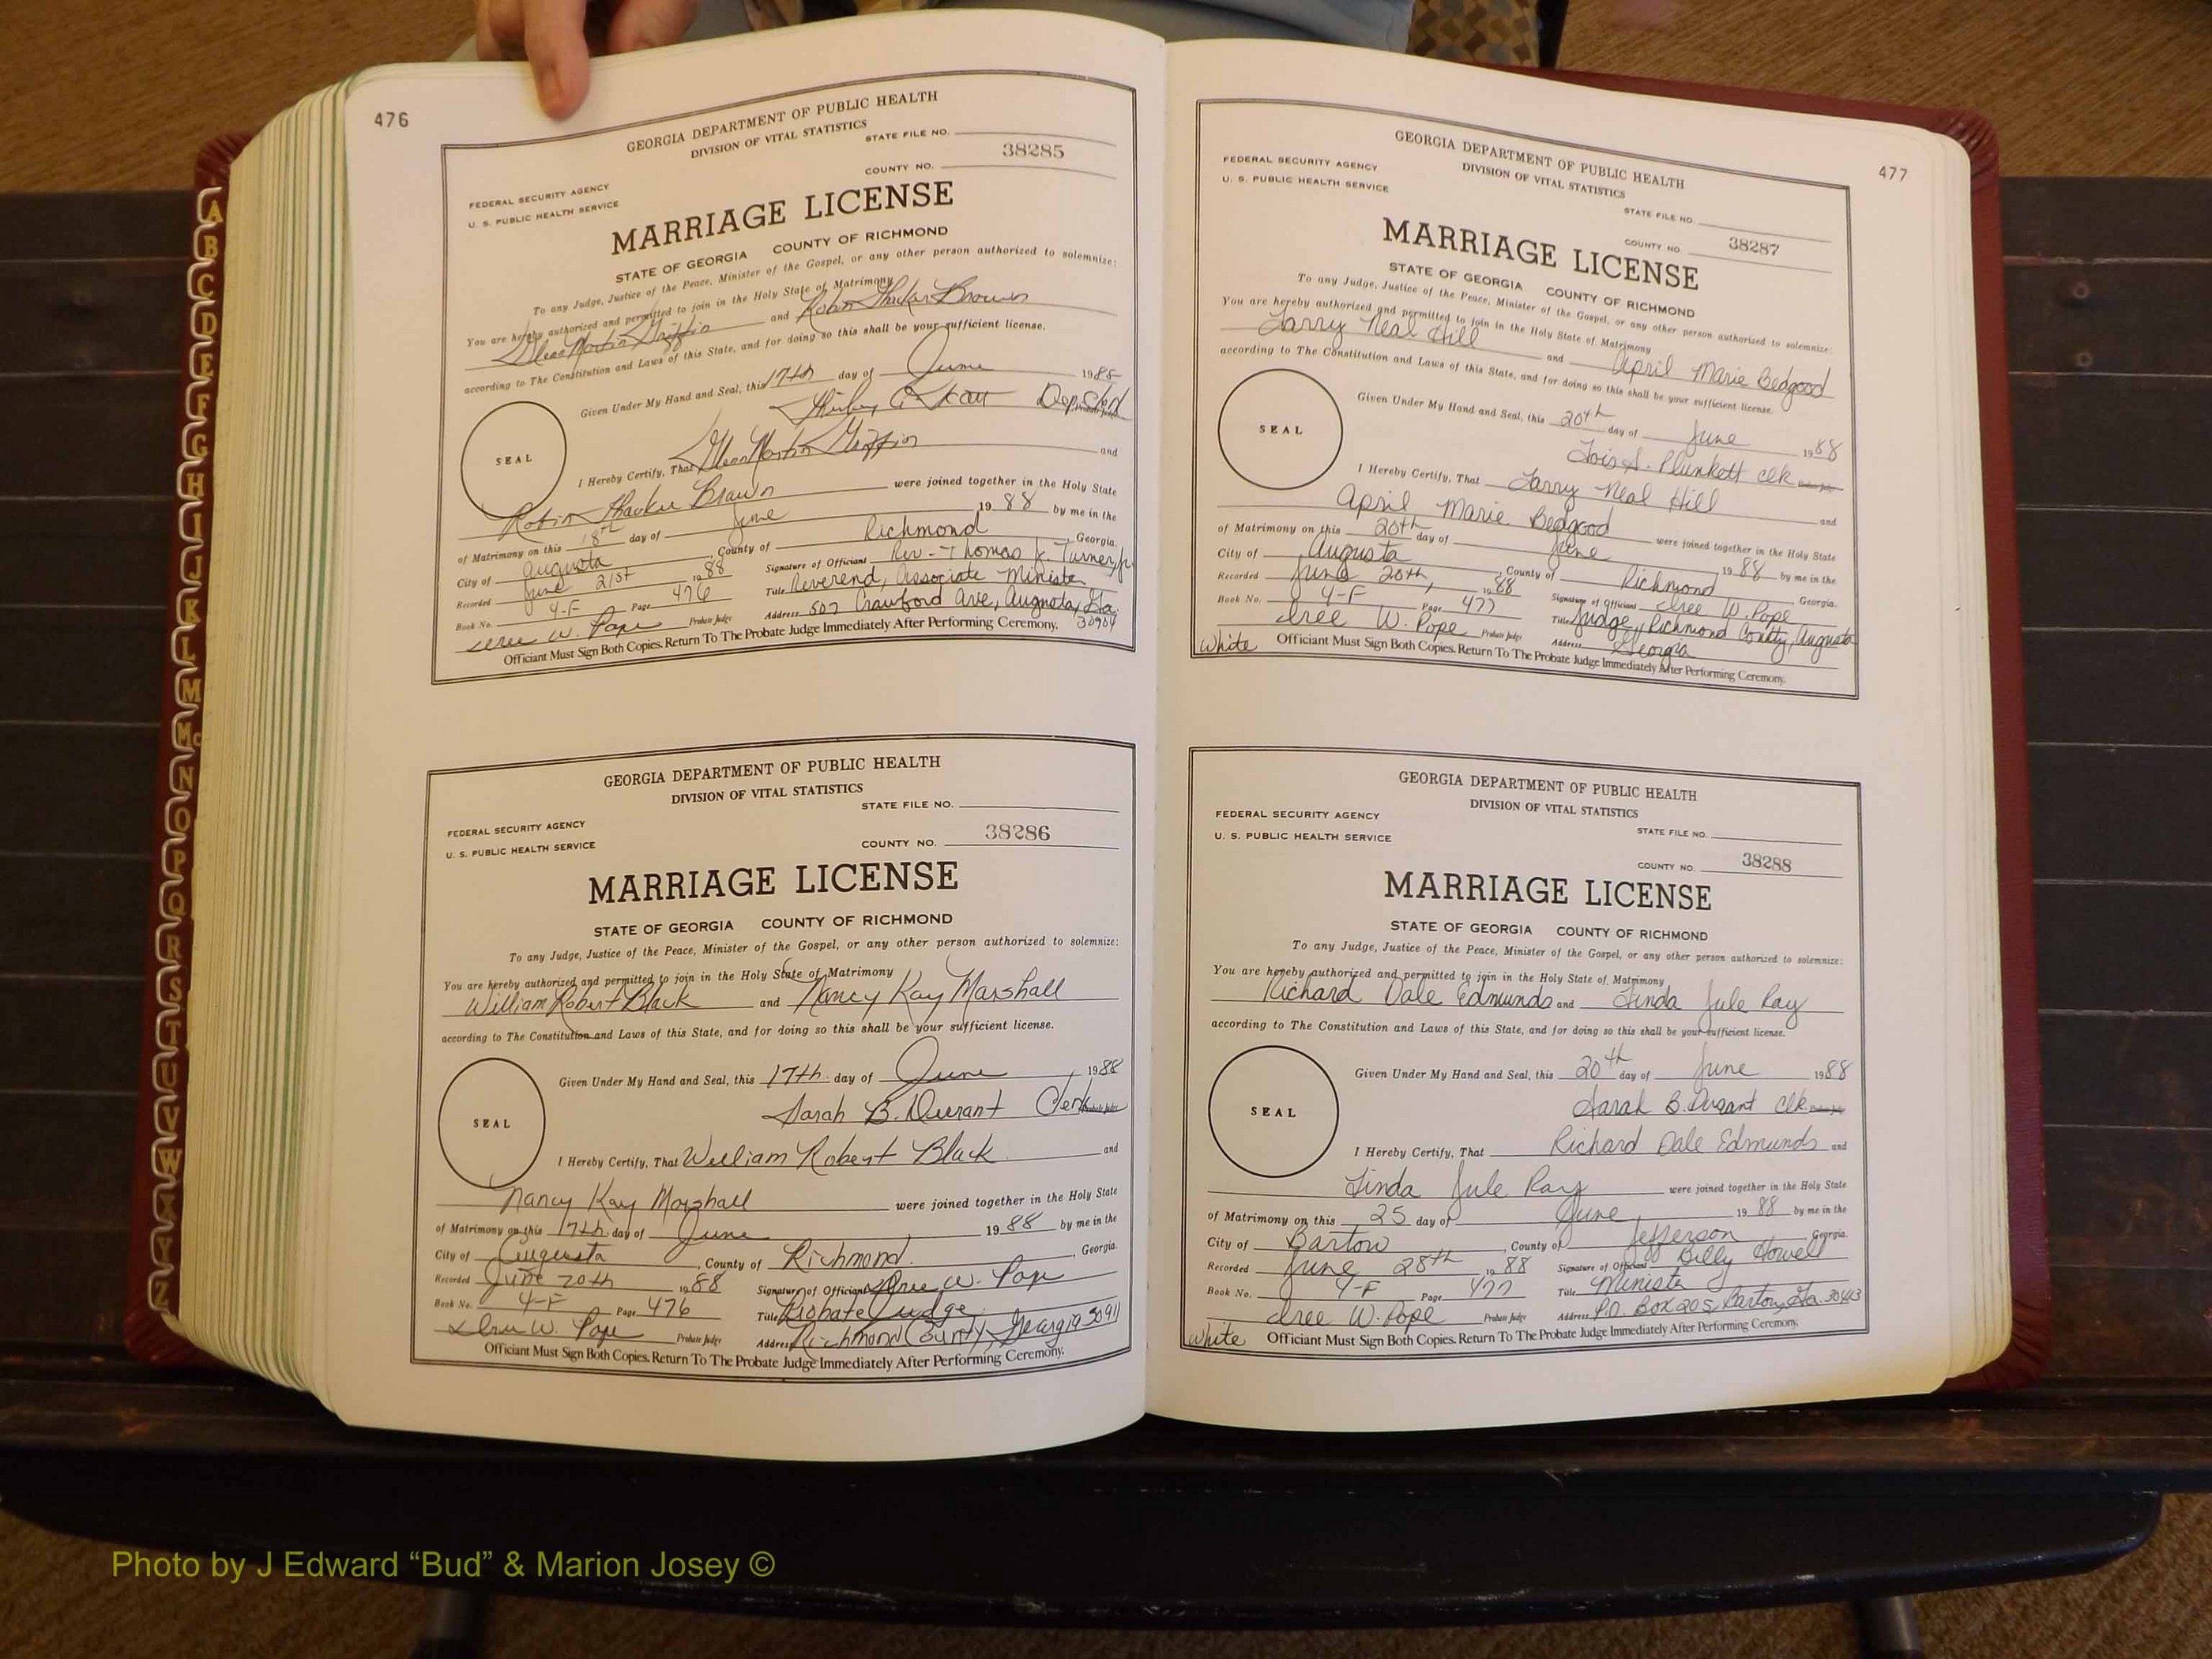 476
GEORGIA DEPARTMENT OF PUBLIC HEALTH
DIVISION OF VITAL STATISTICS
STATE FILE NO.
COUNTY NO. 38285
FEDERAL SECURITY AGENCY
U. S. PUBLIC HEALTH SERVICE
MARRIAGE LICENSE
STATE OF GEORGIA COUNTY OF RICHMOND
To any Judge, Justice of the Peace, Minister of the Gospel, or any other person authorized to solemnize:
You are hereby authorized and permitted to join in the Holy State of Matrimony
Glenn Martin Griffin and Robin Thacker Brown
according to The Constitution and Laws of this State, and for doing so this shall be your sufficient license.
Given Under My Hand and Seal, this 17th day of June 1988
Shirley
SEAL
I Hereby Certify, That Glenn Martin Griffin and
Robin Thacker Brown were joined together in the Holy State
of Matrimony on this 18th day of June 19 88 by me in the
City of Augusta, County of Richmond, Georgia.
Recorded June 21st 19 88 Signature of Officiant Rev. Thomas Turner, Jr.
Book No. 4-F Page 476 Title Reverend, Associate Minister
Iree W. Pope Probate Judge Address 507 Crawford Ave, Augusta, Ga. 30904
Officiant Must Sign Both Copies. Return To The Probate Judge Immediately After Performing Ceremony.
GEORGIA DEPARTMENT OF PUBLIC HEALTH
DIVISION OF VITAL STATISTICS
STATE FILE NO.
FEDERAL SECURITY AGENCY
U. S. PUBLIC HEALTH SERVICE
COUNTY NO. 38286
MARRIAGE LICENSE
STATE OF GEORGIA COUNTY OF RICHMOND
To any Judge, Justice of the Peace, Minister of the Gospel, or any other person authorized to solemnize:
You are hereby authorized and permitted to join in the Holy State of Matrimony
William Robert Black and Nancy Kay Marshall
according to The Constitution and Laws of this State, and for doing so this shall be your sufficient license.
Given Under My Hand and Seal, this 17th day of June 1988
Sarah B. Durant Clerk Probate Judge
SEAL
I Hereby Certify, That William Robert Black and
Nancy Kay Marshall were joined together in the Holy State
of Matrimony on this 17th day of June 19 88 by me in the
City of Augusta, County of Richmond, Georgia.
Recorded June 20th 19 88 Signature of Officiant Iree W. Pope
Book No. 4-F Page 476 Title Probate Judge
Iree W. Pope Probate Judge Address Richmond County, Georgia 30911
Officiant Must Sign Both Copies. Return To The Probate Judge Immediately After Performing Ceremony.
477
GEORGIA DEPARTMENT OF PUBLIC HEALTH
DIVISION OF VITAL STATISTICS
FEDERAL SECURITY AGENCY
U. S. PUBLIC HEALTH SERVICE
STATE FILE NO.
COUNTY NO. 38287
MARRIAGE LICENSE
STATE OF GEORGIA COUNTY OF RICHMOND
To any Judge, Justice of the Peace, Minister of the Gospel, or any other person authorized to solemnize:
You are hereby authorized and permitted to join in the Holy State of Matrimony
Larry Neal Hill and April Marie Bedgood
according to The Constitution and Laws of this State, and for doing so this shall be your sufficient license.
Given Under My Hand and Seal, this 20th day of June 1988
Lois S. Plunkett clk Probate Judge
SEAL
I Hereby Certify, That Larry Neal Hill and
April Marie Bedgood were joined together in the Holy State
of Matrimony on this 20th day of June 19 88 by me in the
City of Augusta, County of Richmond Georgia.
Recorded June 20th, 19 88 Signature of Officiant Iree W. Pope
Book No. 4-F Page 477 Title Judge, Richmond County, Augusta
Iree W. Pope Probate Judge Address Georgia
White Officiant Must Sign Both Copies. Return To The Probate Judge Immediately After Performing Ceremony.
GEORGIA DEPARTMENT OF PUBLIC HEALTH
DIVISION OF VITAL STATISTICS
FEDERAL SECURITY AGENCY
U. S. PUBLIC HEALTH SERVICE
STATE FILE NO.
COUNTY NO. 38288
MARRIAGE LICENSE
STATE OF GEORGIA COUNTY OF RICHMOND
To any Judge, Justice of the Peace, Minister of the Gospel, or any other person authorized to solemnize:
You are hereby authorized and permitted to join in the Holy State of Matrimony
Richard Dale Edmunds and Linda Jule Ray
according to The Constitution and Laws of this State, and for doing so this shall be your sufficient license.
Given Under My Hand and Seal, this 20th day of June 1988
Sarah B. Durant clk. Probate Judge
SEAL
I Hereby Certify, That Richard Dale Edmunds and
Linda Jule Ray were joined together in the Holy State
of Matrimony on this 25 day of June, 19 88 by me in the
City of Bartow, County of Jefferson Georgia.
Recorded June 28th 19 88 Signature of Officiant Billy Howell
Book No. 4-F Page 477 Title Minister
Iree W. Pope Probate Judge Address P.O. Box 205, Bartow, Ga. 30413
White Officiant Must Sign Both Copies. Return To The Probate Judge Immediately After Performing Ceremony.
A
B
C
D
E
F
G
H
I
J
K
L
M
Mc
N
O
P
Q
R
S
T
U
V
W
X
Y
Z
Photo by J Edward “Bud” & Marion Josey ©